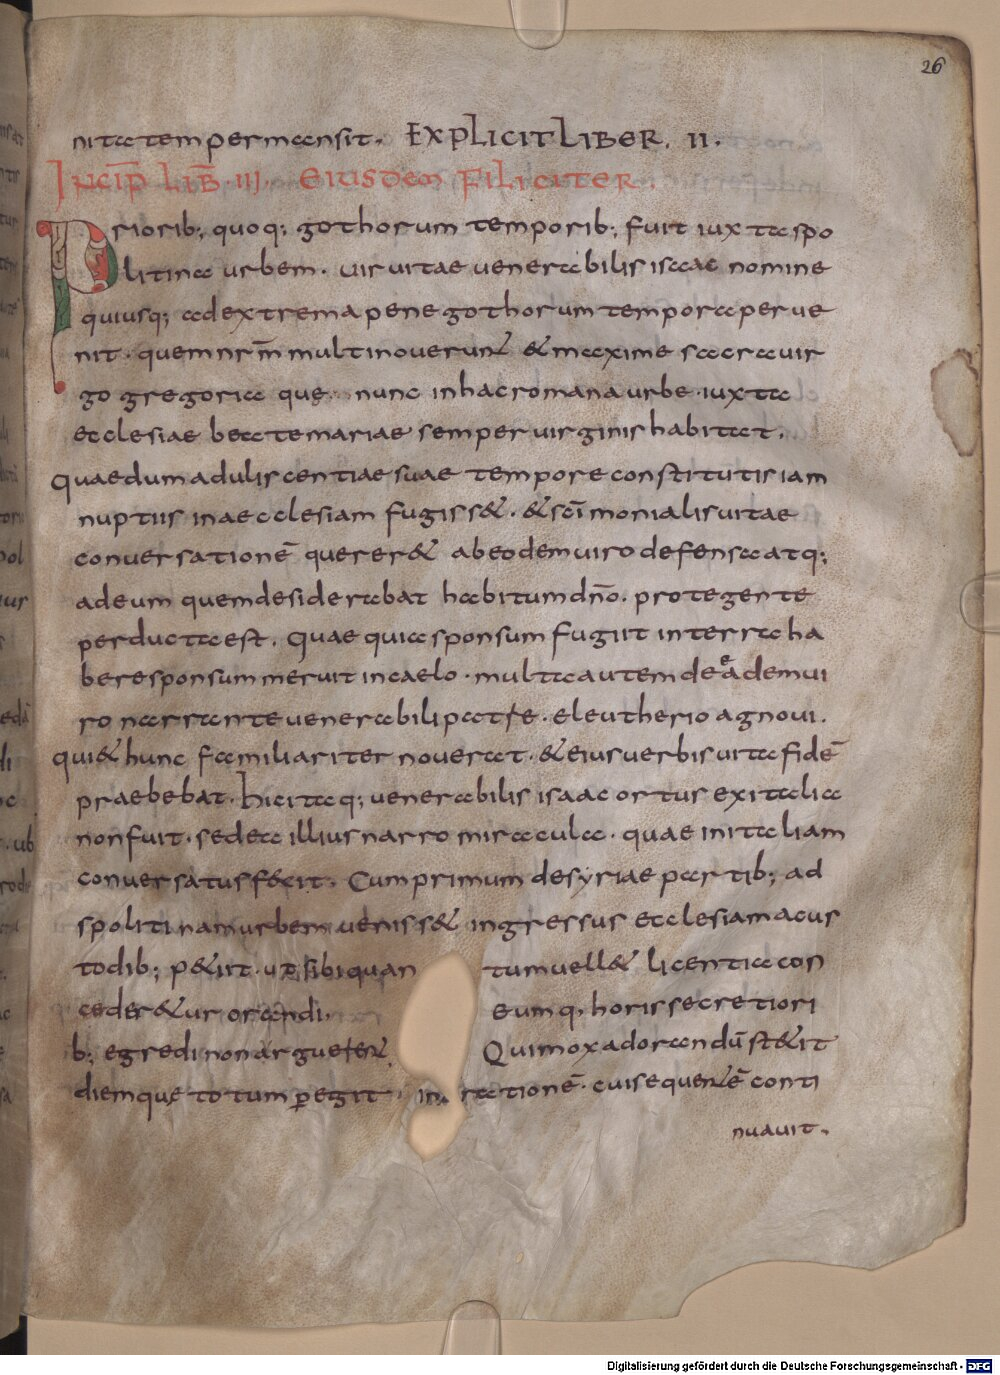 26
nitate permansit. EXPLICIT LIBER. II.
INCIP̄ LIB̄. III. EIUSDEM FELICITER.
Priorib; quoq; gothorum temporib; fuit iuxta spo
litina urbem. uir uitae uenerabilis isaac nomine
quiusq; ad extrema pene gothorum tempora perue
nit. quem nr̄m multi nouerunt & maxime sacra uir
go gregoria que nunc in hac romana urbe iuxta
ecclesiae beate mariae semper uirginis habitat.
Quae dum aduliscentiae suae tempore constitutis iam
nuptiis in aecclesiam fugiss&. & sc̄imonialis uitae
conuersationē querer& ab eodem uiro defensa atq;
ad eum quem desiderabat habitum dn̄o. protegente
perducta est. Quae quia sponsum fugiit in terra ha
bere sponsum meruit in caelo. multa autem de eademui
ro narrante uenerabili patre. eleutherio agnoui.
qui & hunc familiariter nouerat. & eius uerbis uita fidē
praebebat. hic itaq; uenerabilis isaac ortus ex italia
non fuit. sed ea illius narro miracula. quae in italiam
conuersatus fecit. Cum primum de syriae partib; ad
spolitinam urbem ueniss& ingressus ecclesiam a cus
todib; p&iit. ut sibi quan tum uell& licentia con
ceder&ur orandi. eumq, horis secretiori
b; egredi non arguerent. Qui mox adorandū st&it
diemque totum p̄egit in ratione. cui sequentē conti
nuauit.
Digitalisierung gefördert durch die Deutsche Forschungsgemeinschaft - DFG